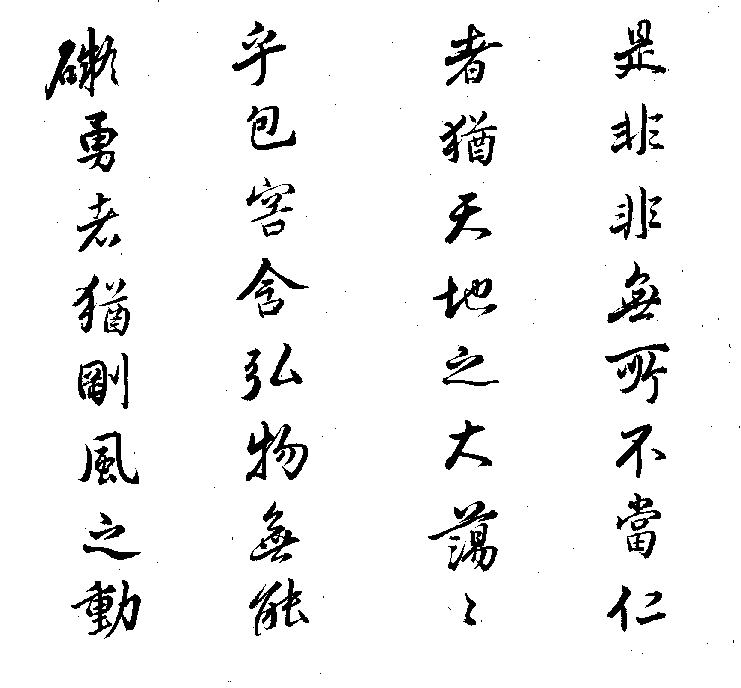 是非非無所不當仁
者猶天地之大蕩〻
乎包容含弘物無能
礙勇者猶剛風之動